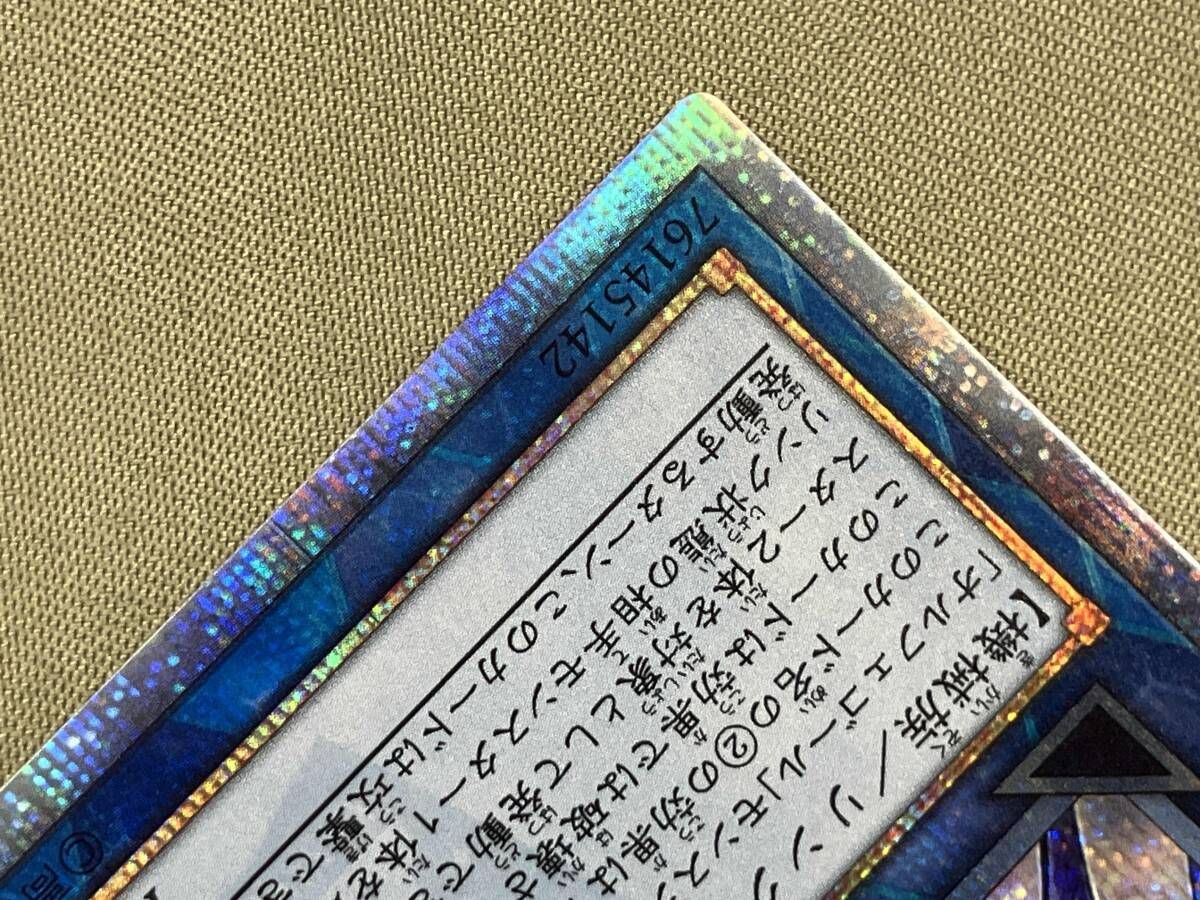 76145142
【機械族／リンク
「オルフェゴール」モンス
このカード名の②の効果は
このカードは効果では破壊
スター２体を対象として発動で
リンク状態の相手モンスター１体を
発動するターン、このカードは攻撃でき
©高